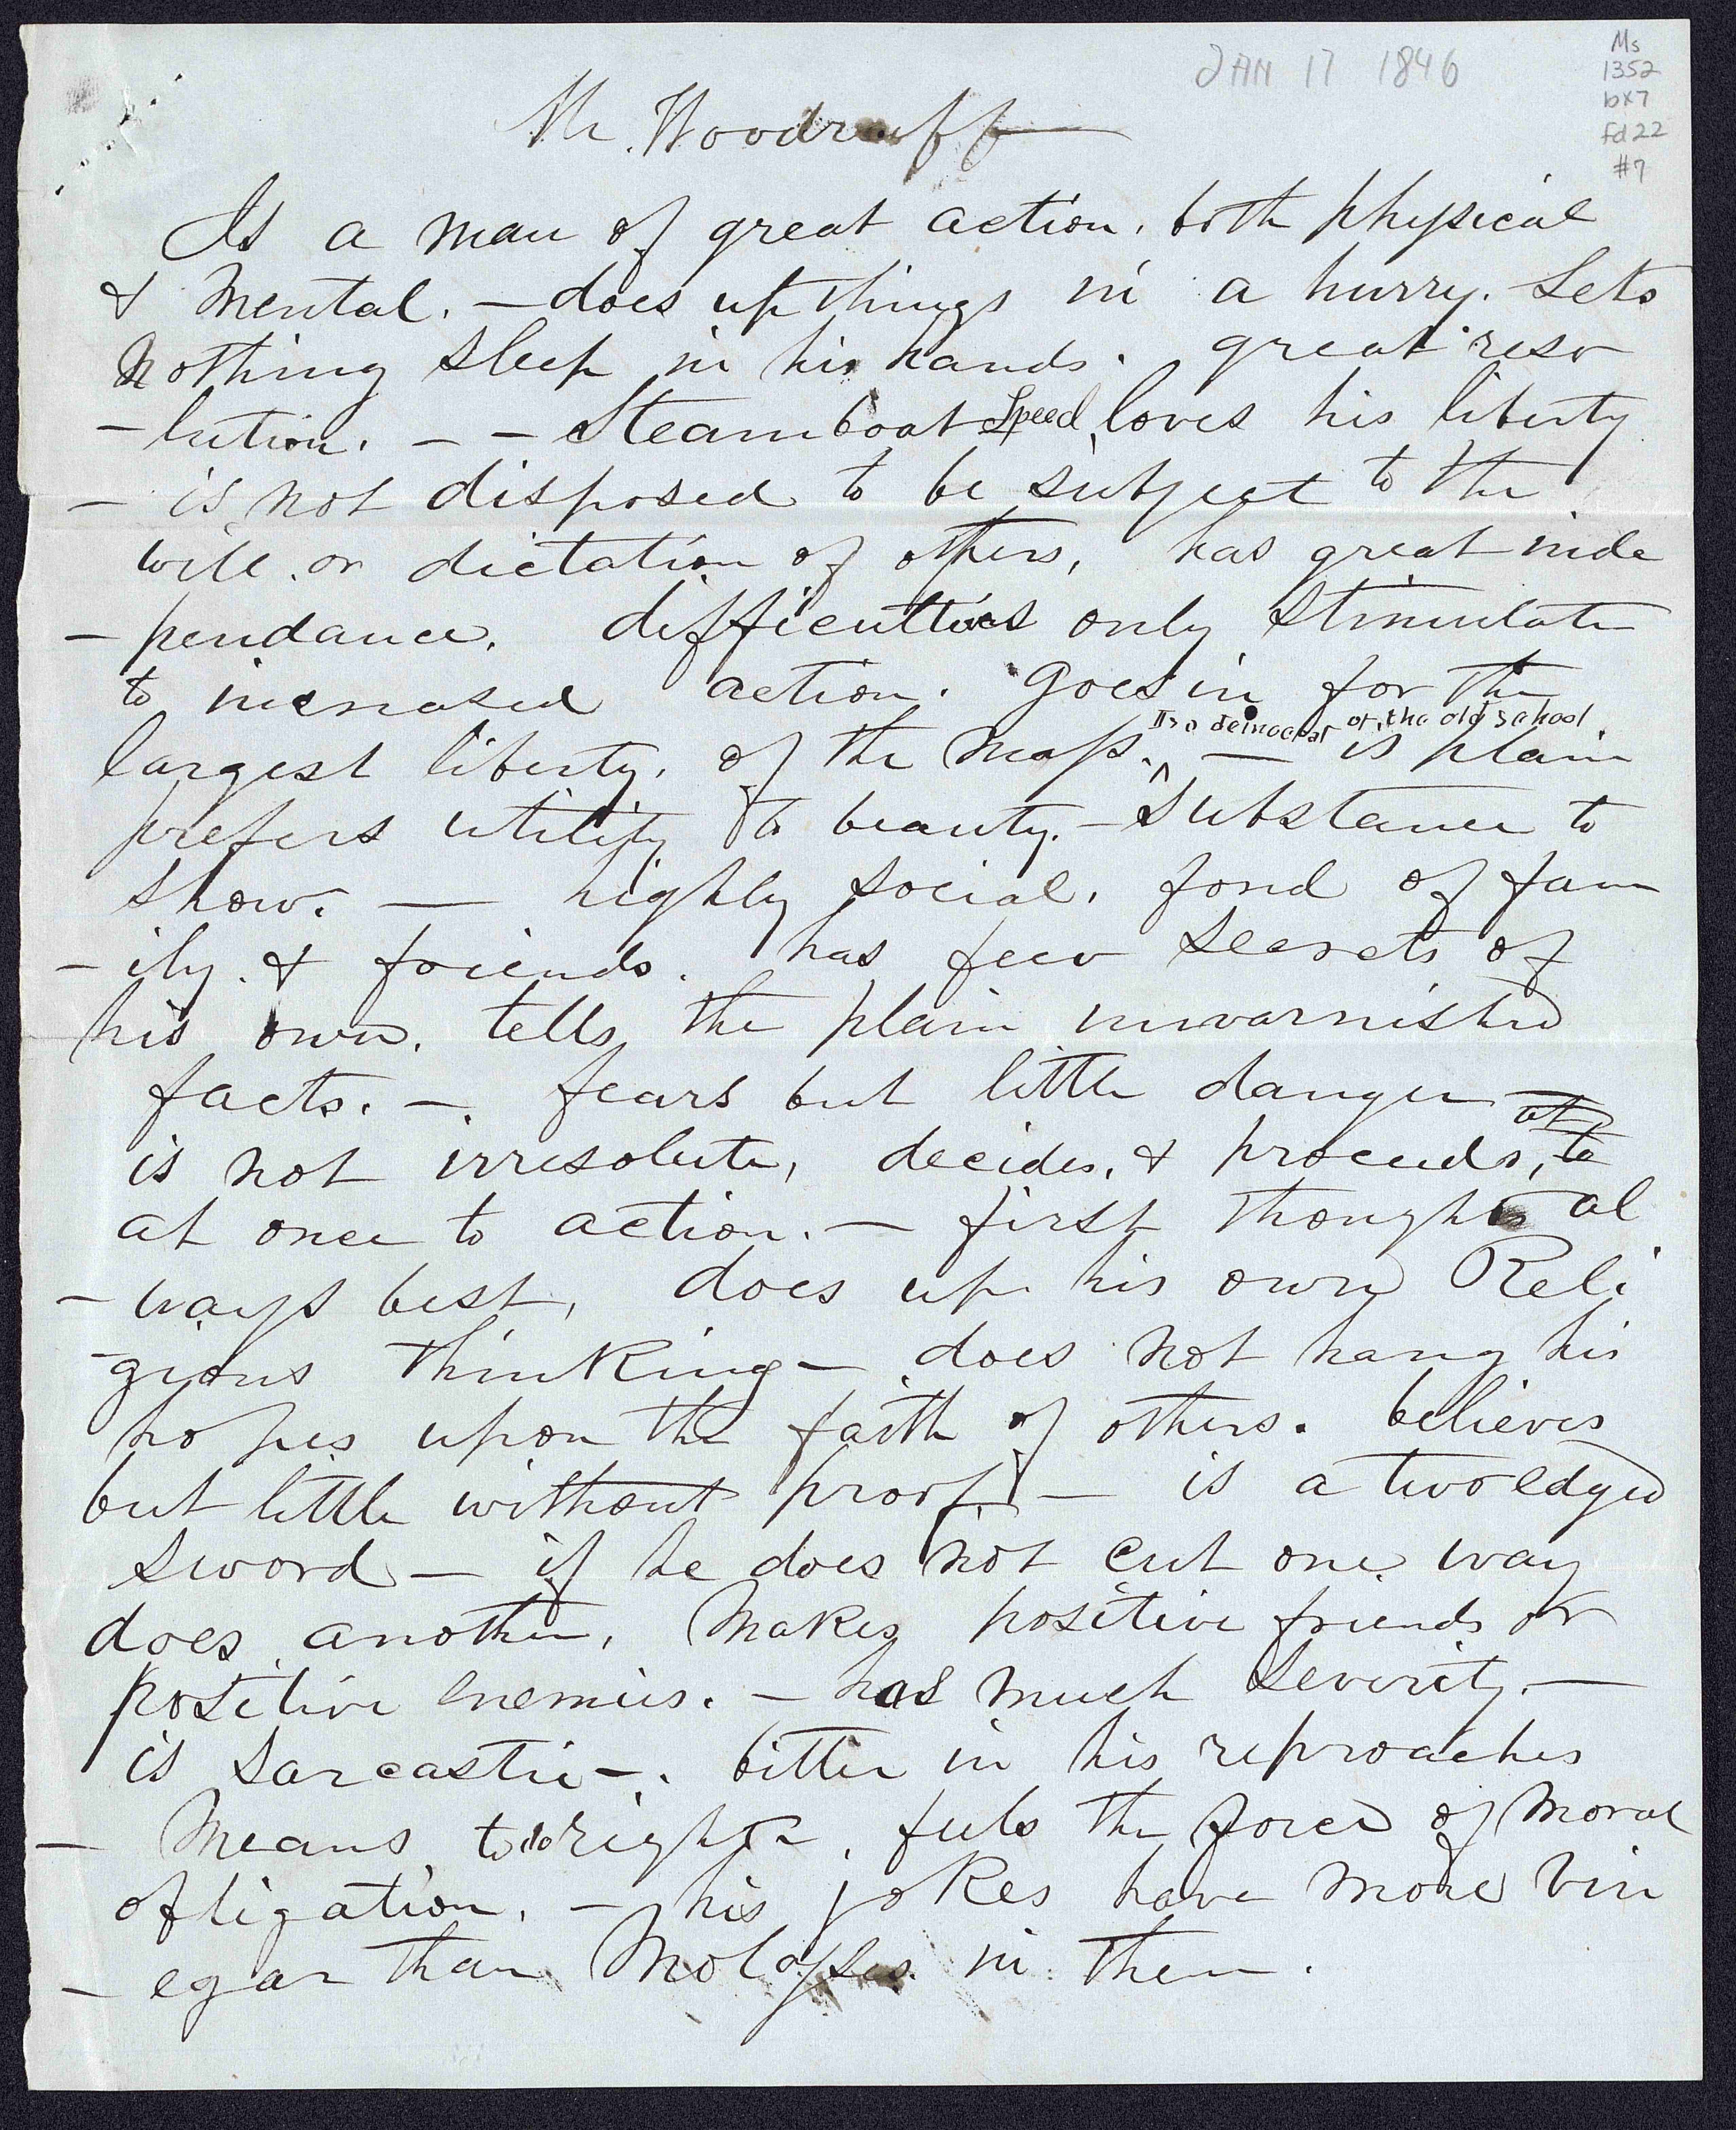 JAN 17 1846
Ms
1352
bx7
fd22
#7
Mr. Woodruff
Is a man of great action, both physical
& Mental. — does up things in a hurry. Lets
Nothing sleep in his hands. great reso
- lution. — — Steam boat Speed, loves his liberty
— is not disposed to be subject to the
will or dictation of others, has great inde
- pendance. difficulties only stimulate
to increased action. goes in for the
Is a democrat of the old school
largest liberty, of the Mass. ^ — is plain
prefers utility to beauty. — Substance to
show. — highly social, fond of fam
- ily. & friends. has few secrets of
his own. tells the plain unvarnished
facts. — fears but little danger —
at
is not irresolute, decides, & proceeds, to
at once to action. — first thoughts al
- ways best, does up his own Reli
- gious thinking — does not hang his
hopes upon the faith of others. believes
but little without proof. — is a two edged
sword — if he does not cut one way
does another, Makes positive friends or
positive enemies. — has much severity. —
is sarcastic —. bitter in his reproaches
— Means to do right, feels the force of Moral
obligation. — his jokes have more vin
- egar than Molasses in them.